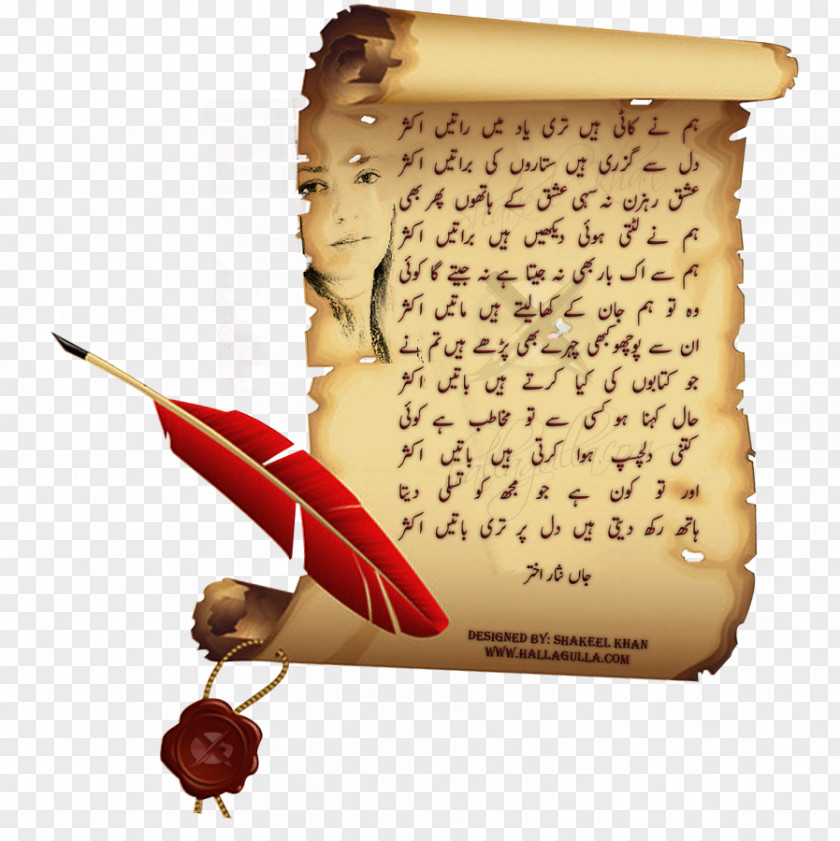 ہم نے کاٹی ہیں تری یاد میں راتیں اکثر
دل سے گزری ہیں ستاروں کی براتیں اکثر
عشق رہزن نہ سہی عشق کے ہاتھوں پھر بھی
ہم نے لٹتی ہوئی دیکھیں ہیں براتیں اکثر
ہم سے اک بار بھی نہ جیتا ہے نہ جیتے گا کوئی
وہ تو ہم جان کے کھا لیتے ہیں ماتیں اکثر
ان سے پوچھو کبھی چہرے بھی پڑھے ہیں تم نے
جو کتابوں کی کیا کرتے ہیں باتیں اکثر
حال کہنا ہو کسی سے تو مخاطب ہے کوئی
کتنی دلچسپ ہوا کرتی ہیں باتیں اکثر
اور تو کون ہے جو مجھ کو تسلی دیتا
ہاتھ رکھ دیتی ہیں دل پر تری باتیں اکثر
جاں نثار اختر
DESIGNED BY: SHAKEEL KHAN
WWW.HALLAGULLA.COM